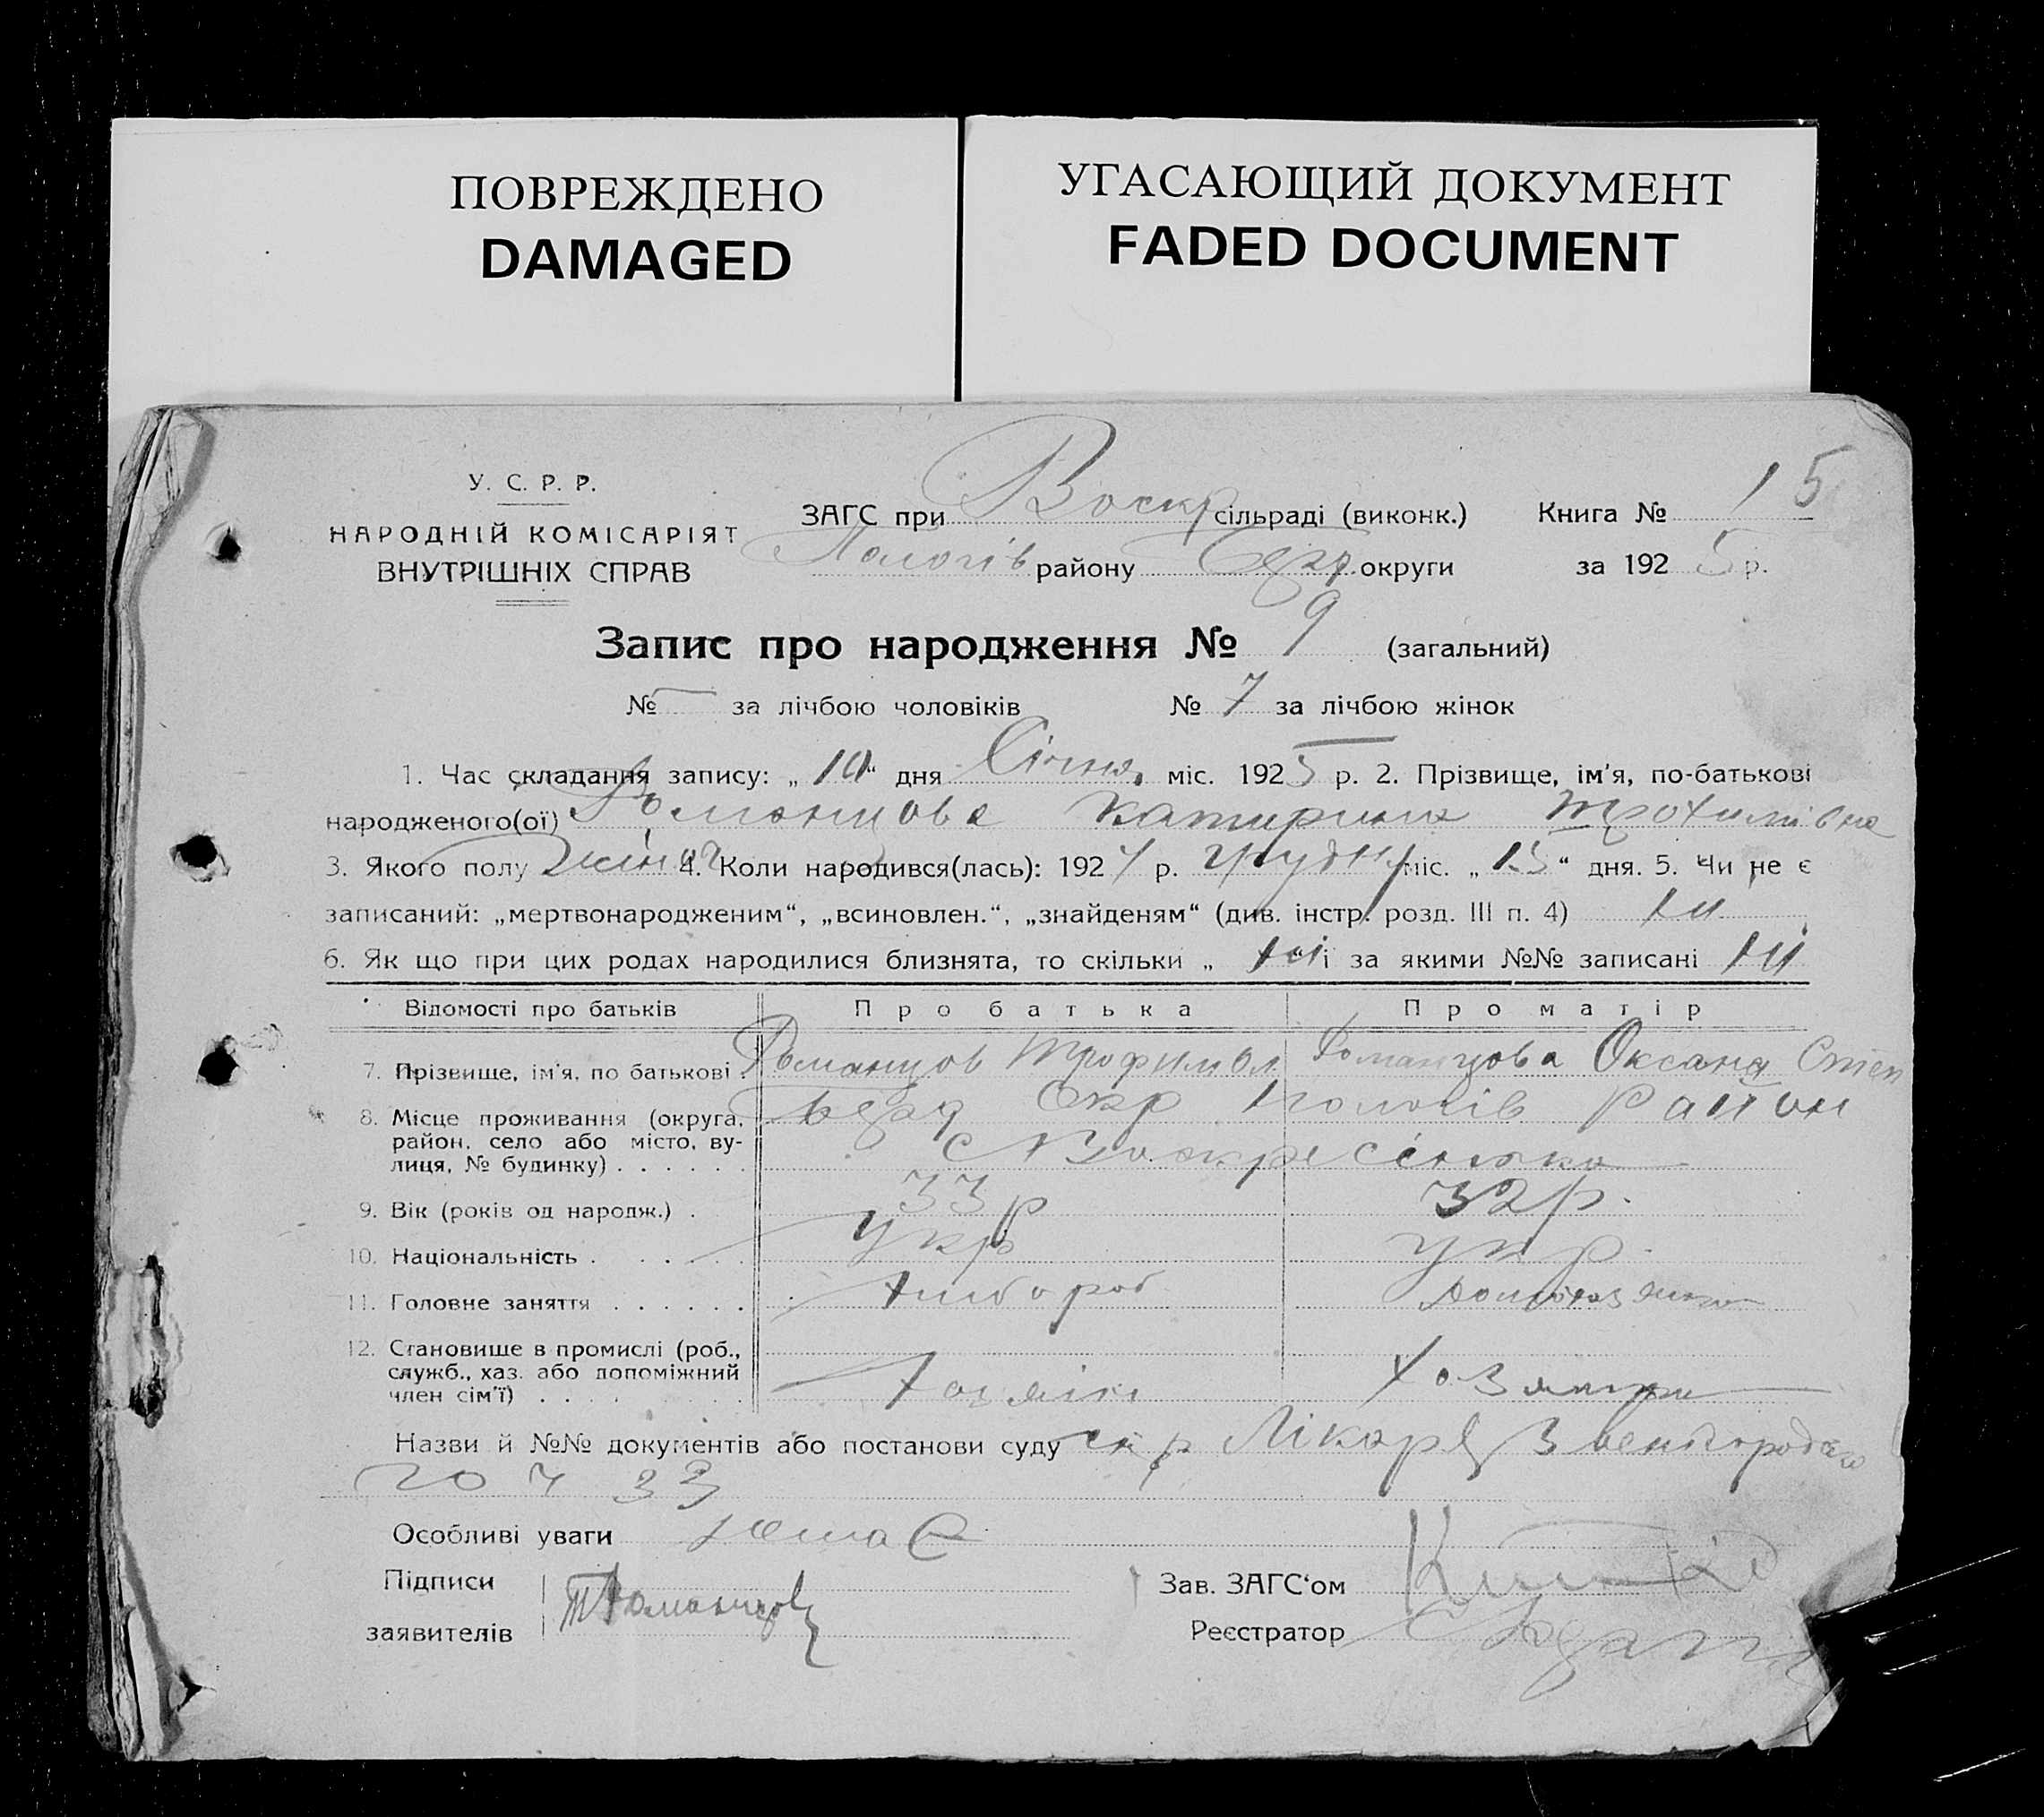 ПОВРЕЖДЕНО
DAMAGED
УГАСАЮЩИЙ ДОКУМЕНТ
FADED DOCUMENT
15
У. С. Р. Р.
НАРОДНІЙ КОМІСАРІЯТ
ВНУТРІШНІХ СПРАВ
ЗАГС при Воскр сільраді (виконк.) Книга №
Пологів району Берд округи за 1925 р.
Запис про народження № 9 (загальний)
№ — за лічбою чоловіків № 7 за лічбою жінок
1. Час складання запису: „10“ дня Січня міс. 1925 р. 2. Прізвище, ім'я, по-батькові
народженого(ої) Романцова Катирина Трохимівна
3. Якого полу жіноч 4. Коли народився(лась): 1924 р. грудня міс. „15“ дня. 5. Чи не є
записаний: „мертвонародженим“, „всиновлен.“, „знайденям“ (див. інстр. розд. III п. 4) ні
6. Як що при цих родах народилися близнята, то скільки „ні“ і за якими №№ записані ні
Відомості про батьків Про батька Про матір
7. Прізвище, ім'я, по батькові Романцов Трофим Романцова Оксана Степ
8. Місце проживання (округа, Берд Окр Пологів Район
район, село або місто, ву- с Воскресенька
лиця, № будинку)
9. Вік (років од народж.) 33 р 32 р.
10. Національність укр укр.
11. Головне заняття хлібороб
12. Становище в промислі (роб.,
служб., хаз. або допоміжний
член сім'ї) хозяін
Назви й №№ документів або постанови суду Лікаря
Особливі уваги немає
Підписи
заявителів ТРоманцов
Зав. ЗАГС'ом
Реєстратор